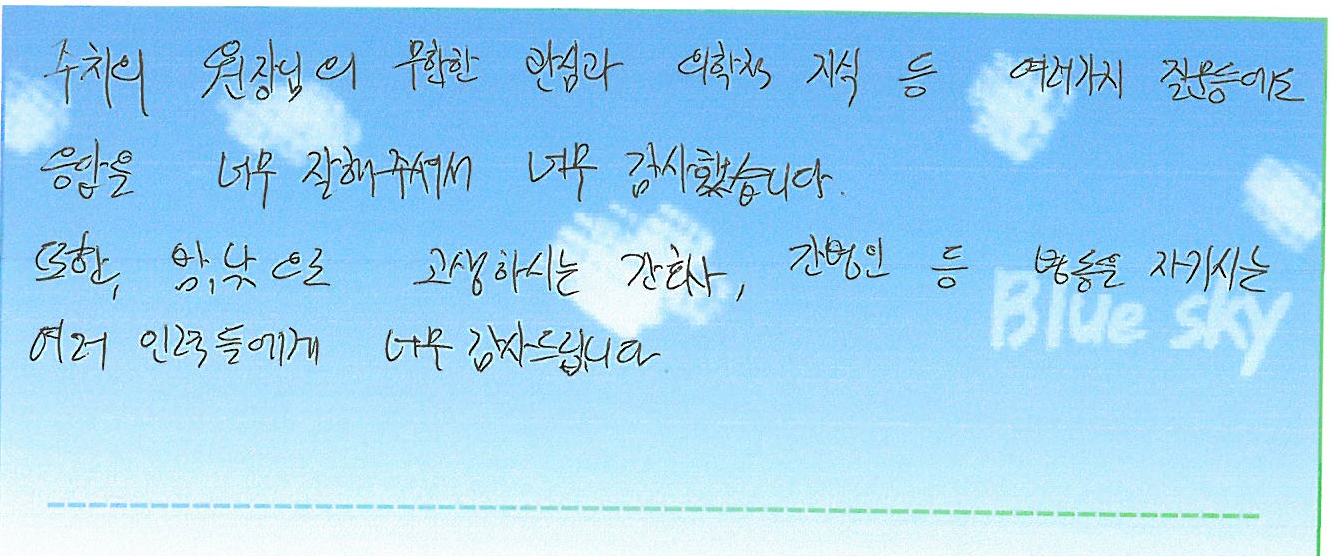 주치의 원장님의 무한한 관심과 의학적 지식 등 여러가지 질문들에도
응답을 너무 잘해주셔서 너무 감사했습니다.
또한, 밤,낮으로 고생하시는 간호사, 간병인 등 병동을 지키시는
여러 인력들에게 너무 감사드립니다
Blue sky